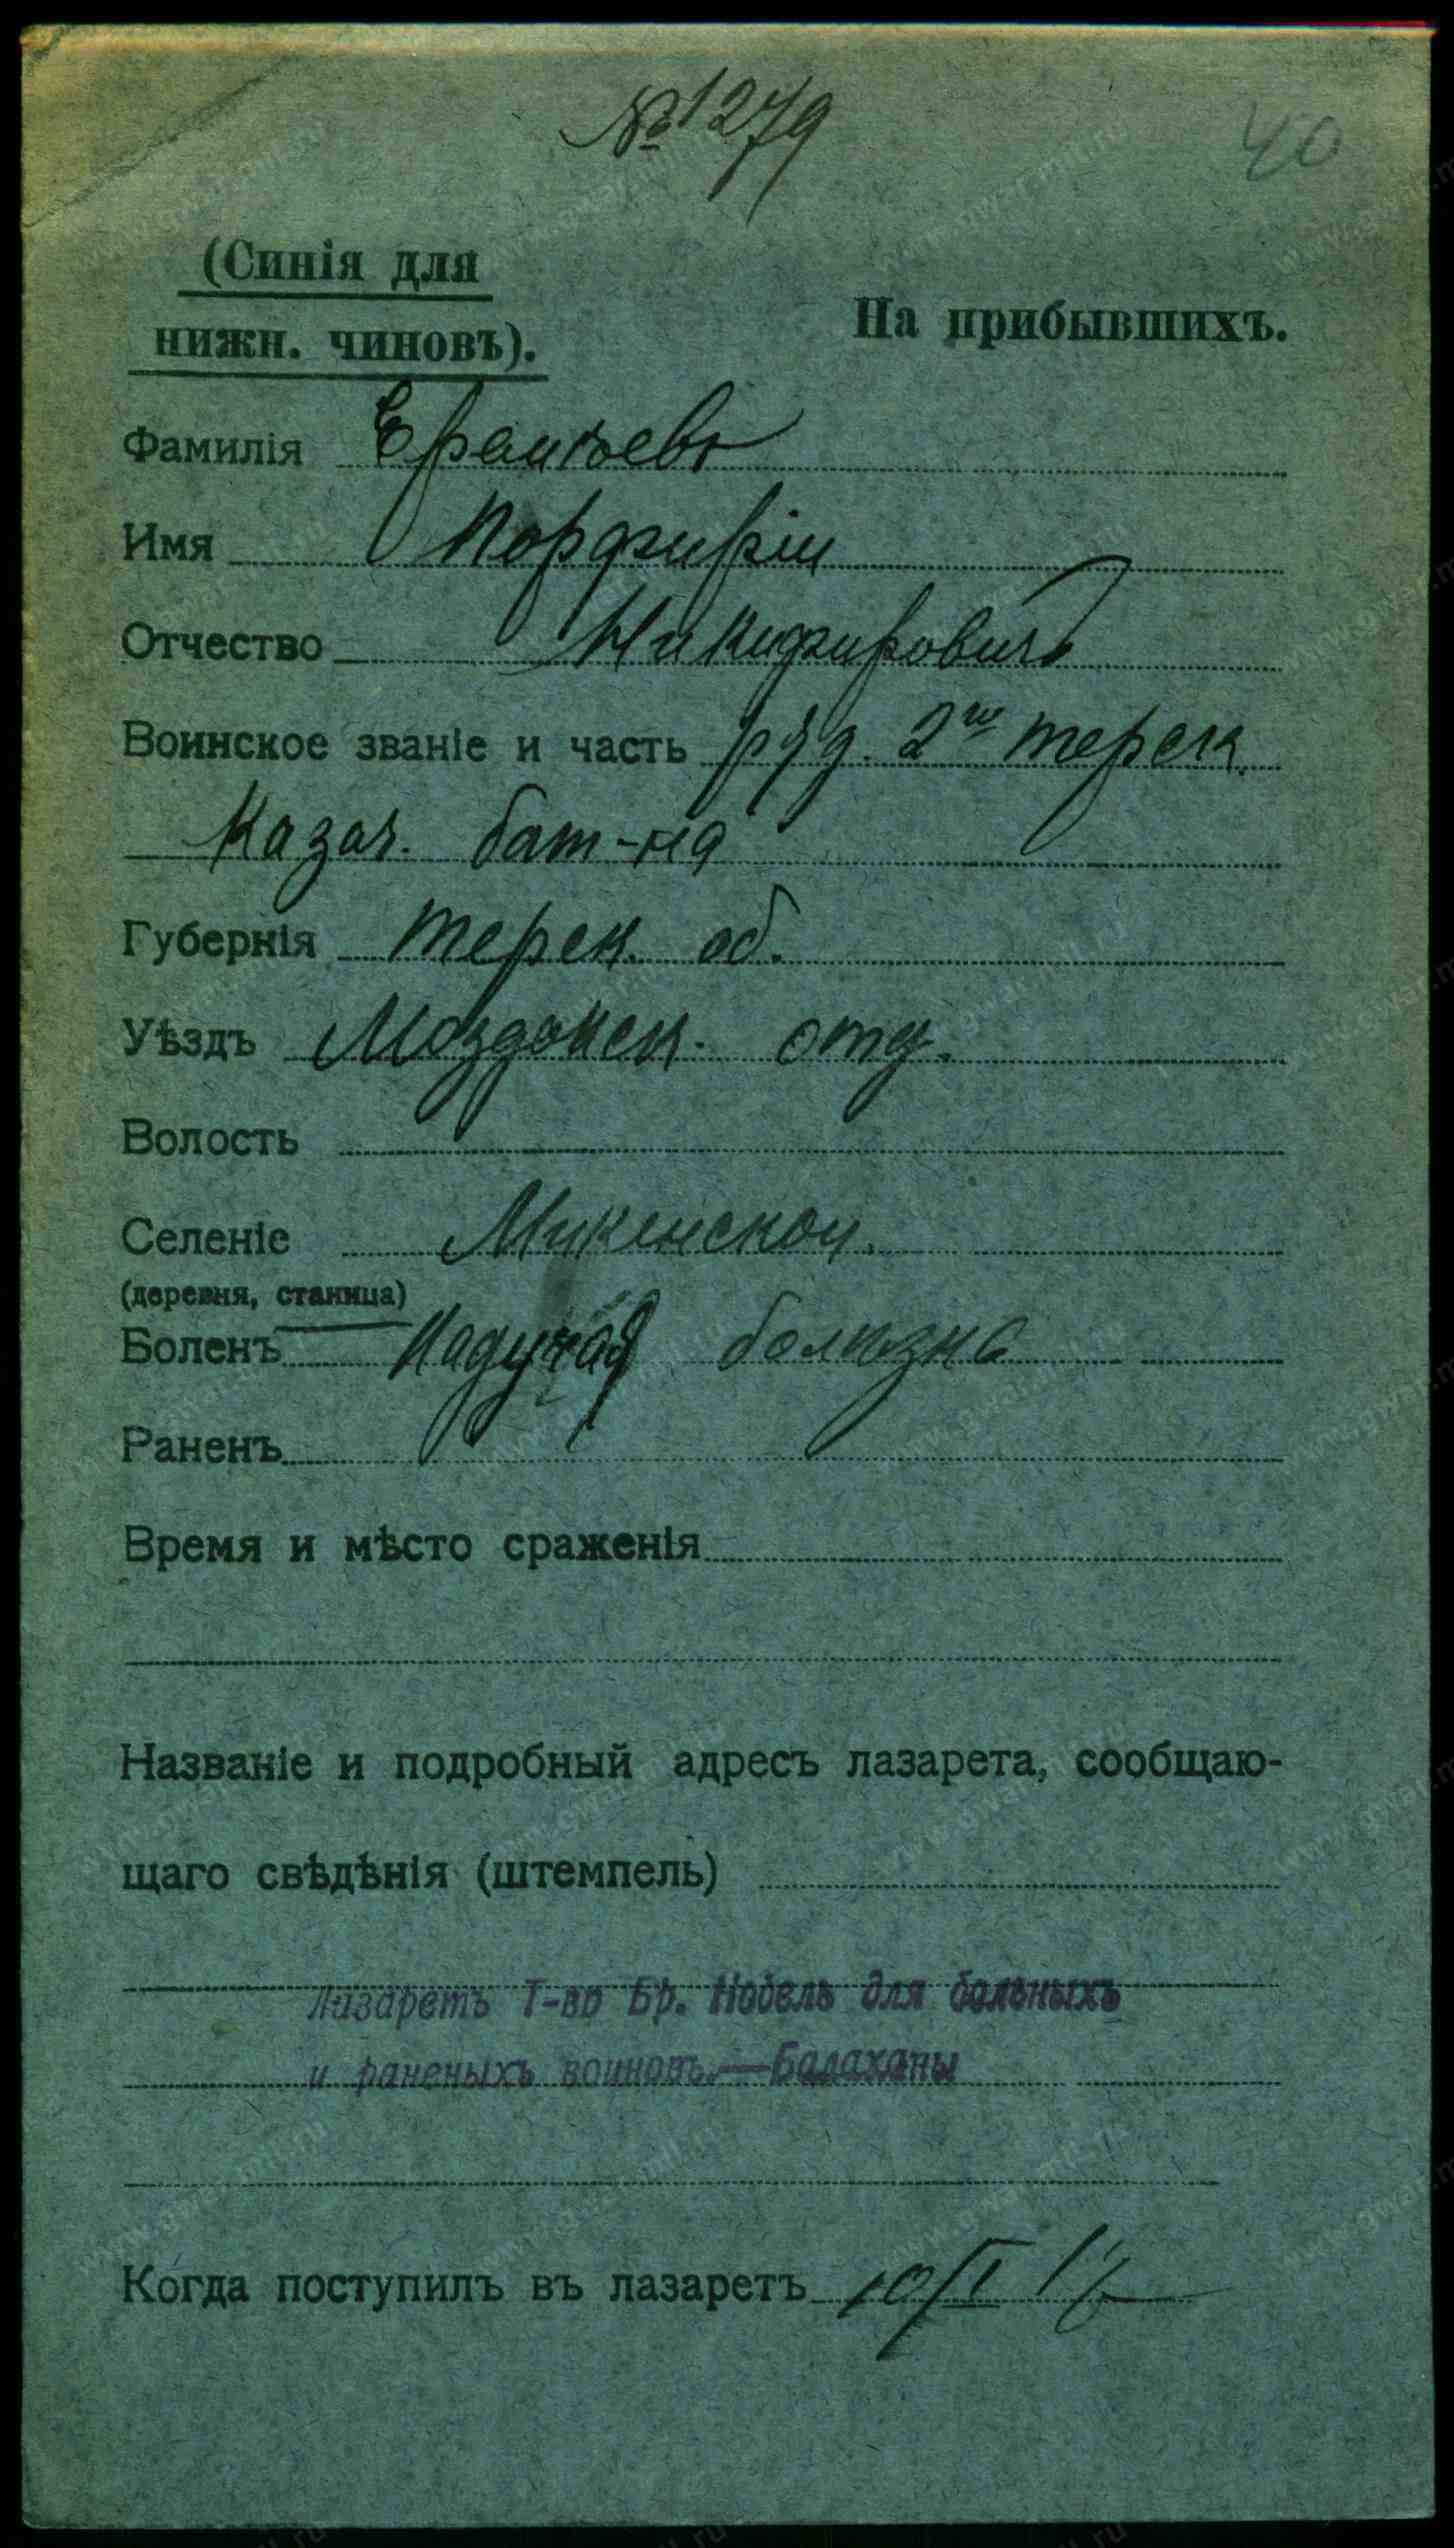 № 1279
40
(Синія для
нижн. чиновъ).
На прибывшихъ.
Фамилія
Имя Порфирій
Отчество Никифировичъ
Воинское званіе и часть ряд. 2го терск.
Казач. бат-на
Губернія терск. об.
Уѣздъ Моздокск. отд.
Волость
Селеніе Микенской
(деревня, станица)
Боленъ Падучая болѣзнь
Раненъ
Время и мѣсто сраженія
Названіе и подробный адресъ лазарета, сообщаю-
щаго свѣдѣнія (штемпель)
Лазаретъ Т-ва Бр. Нобель для больныхъ
и раненыхъ воиновъ.—Балаханы
Когда поступилъ въ лазаретъ 10/I